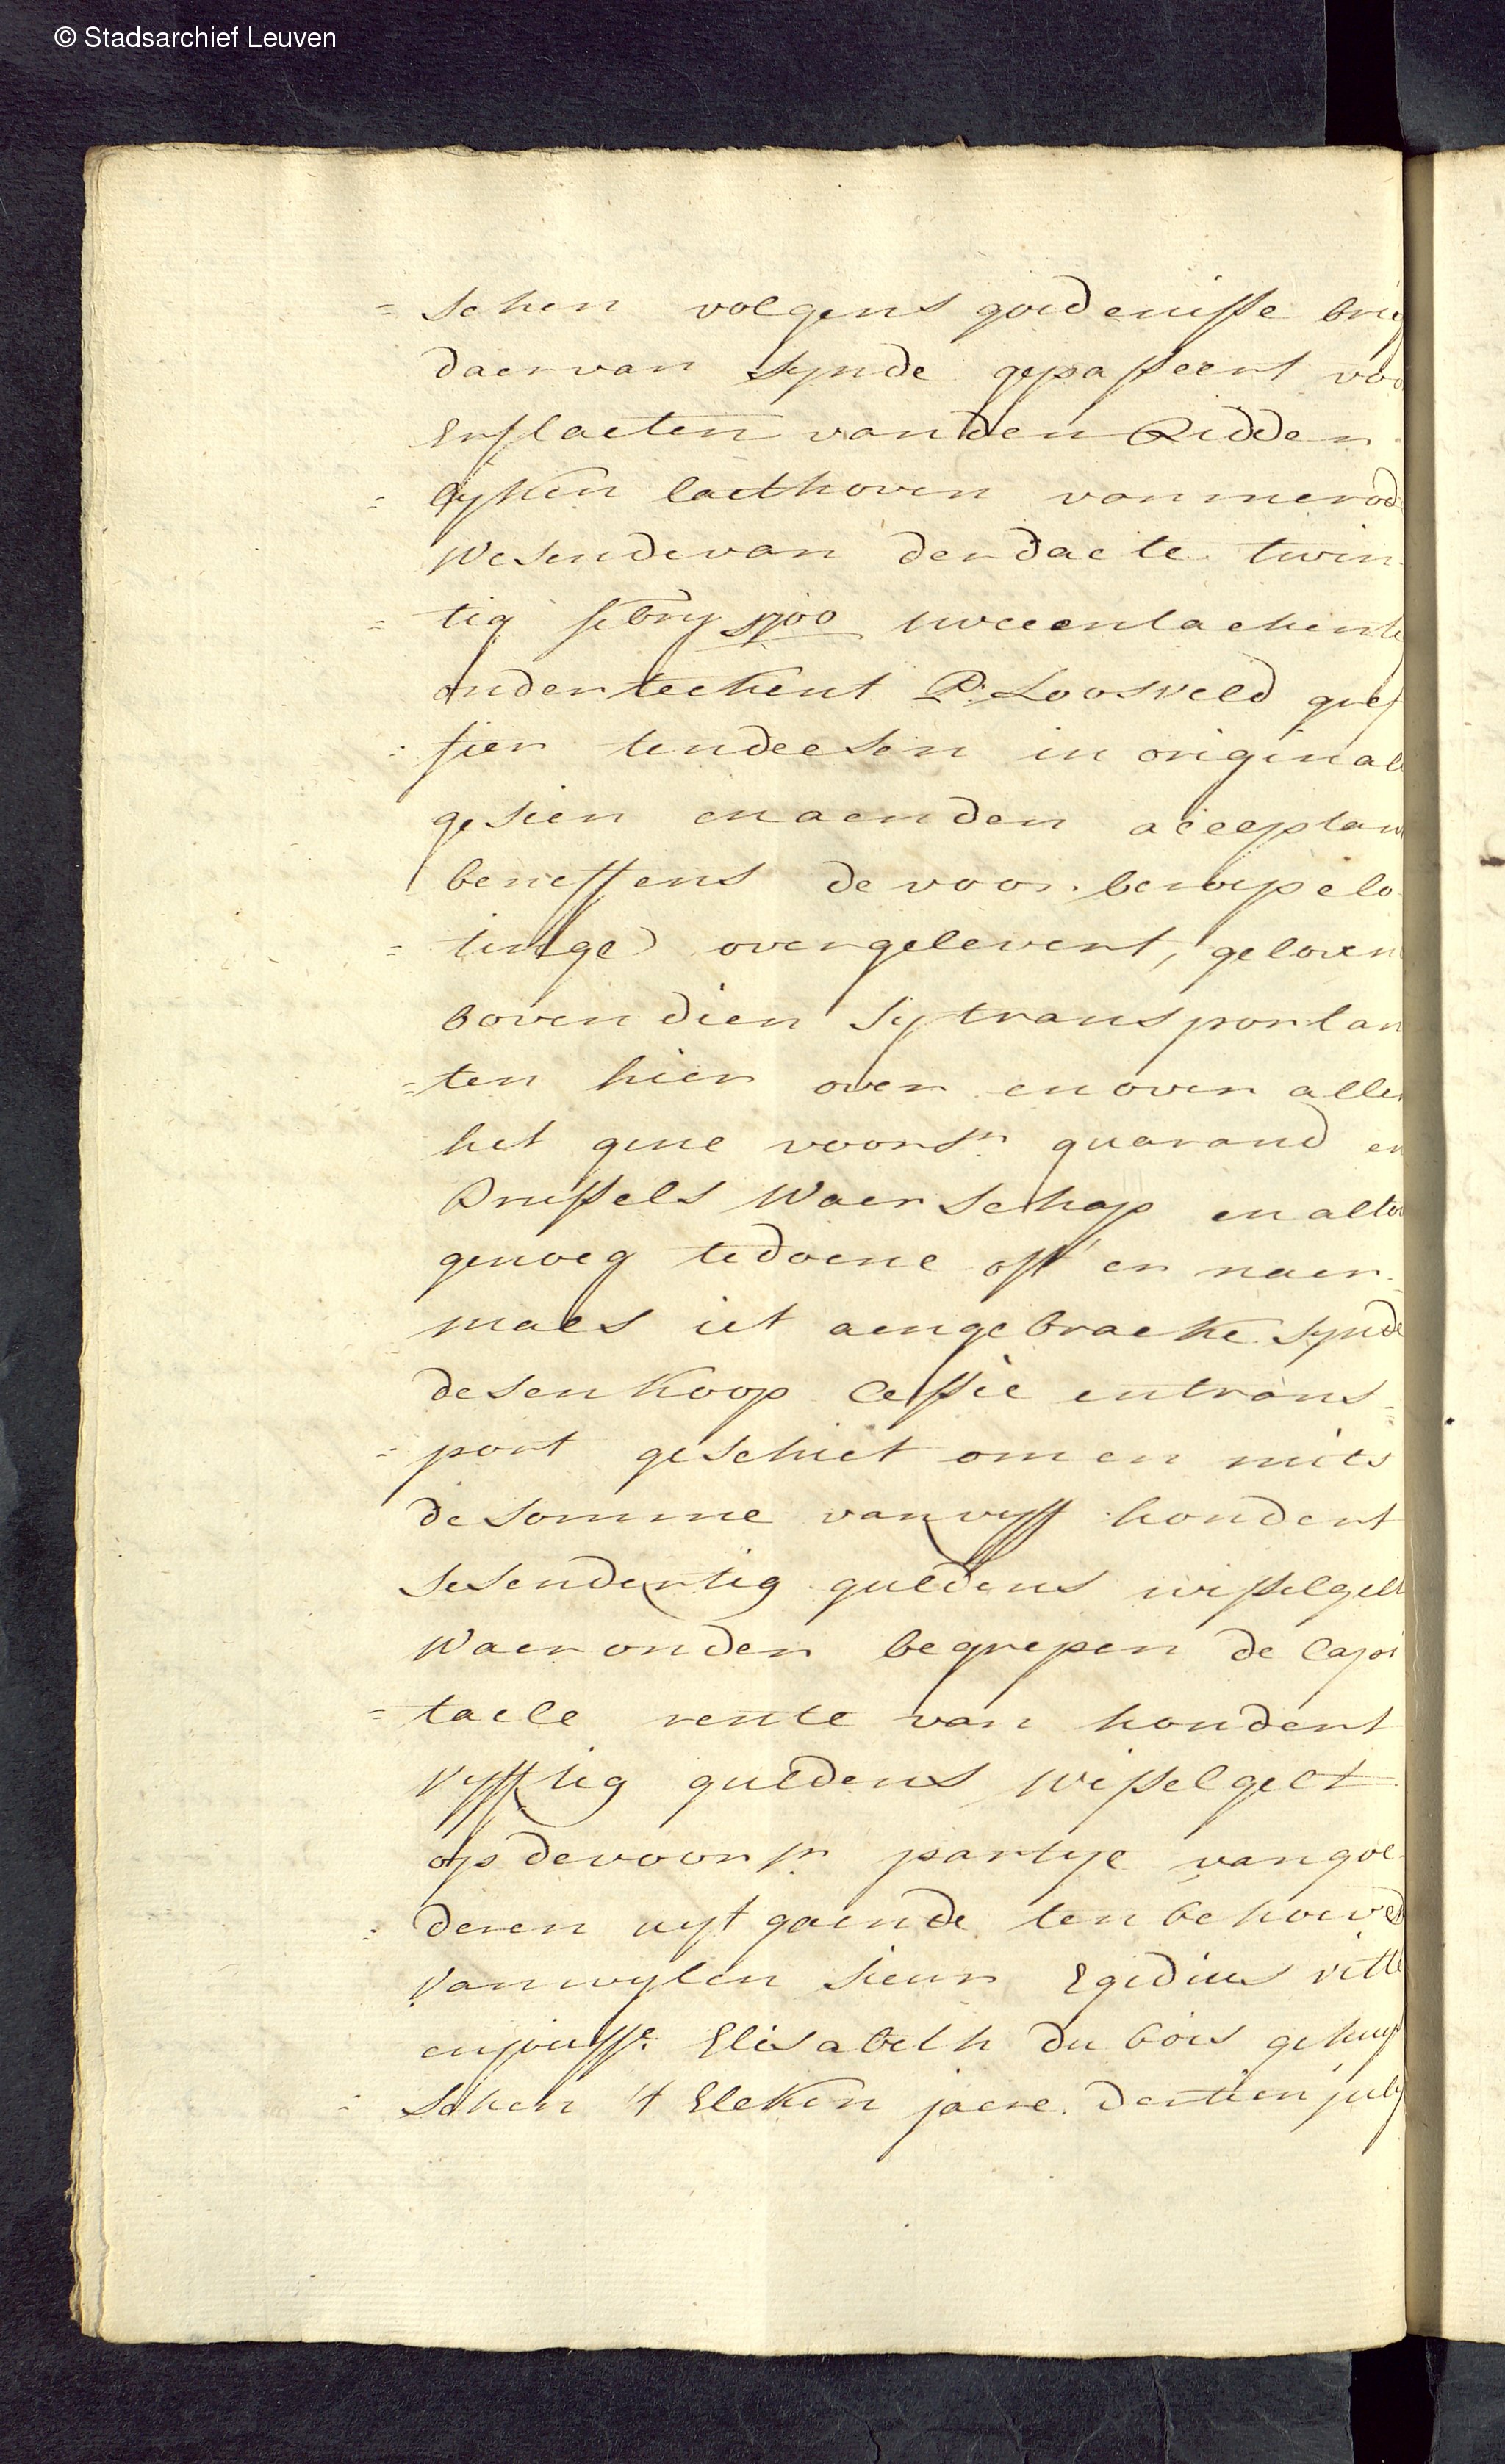 © Stadsarchief Leuven
= schen volgens goedenisse brie
daervan synde gepasseert voo
Erflaeten vanden Ridder
= lyken laethoven van merod
Wesende van der daete twin
= tig febry 1700 tweentachente
onderteekent P. Loosveld gref
= fier tendeesen in original
gesien en aenden acceptan
beneffens de voor. beroepelo
= tinge) overgelevert, geloven
boven dien sy transportan
= ten hier over en over alle
het gene voorsn. guarand en
Brussels Waerschap en alter
genoeg tedoene oft er naer
maels iet aengebraeke synde
desen koop Cessie entrans=
= port geschiet om en mits
de somme van vyff hondert
sesendertig guldens wisselgelt
Waer onder begrepen de Capi
= taele rente van hondert
vyfftig guldens wisselgelt
op de voorsn. partye van goe
= deren uyt gaende ten behoeve
van wylen sieur Egidius vitte
enjouffe. Elisabeth du bois gehuy
= schen 't Elcken jaere dertien july